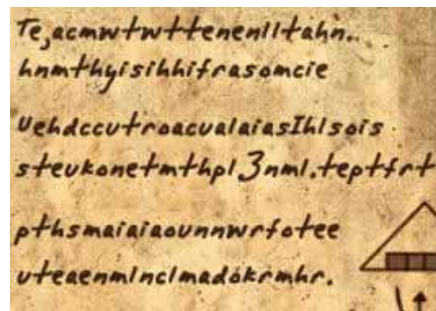 Te,acmwtwttenenlltahn..
hnmthyisihhifrasomcie
Uehdccutroacualaiaslhlsois
steukonetmthpl3nml.teptfrt
pthsmaiaiaounnwrfotee
uteaenmlnclmadokrmhr.